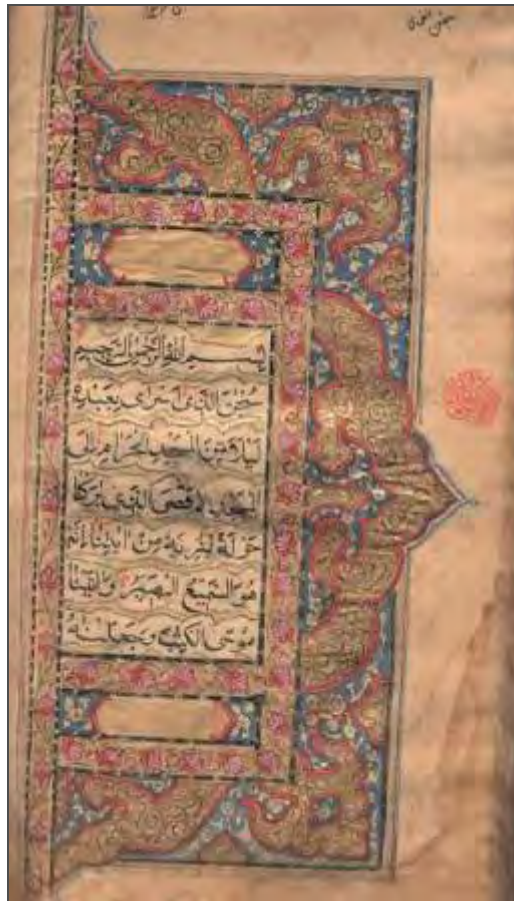 بسم الله الرحمن الرحيم
سبحن الذى اسرى بعبده
ليلا من المسجد الحرام الى
المسجد الاقصى الذى بركنا
حوله لنريه من ايتنا انه
هو السميع البصير واتينا
موسى الكتب وجعلنه